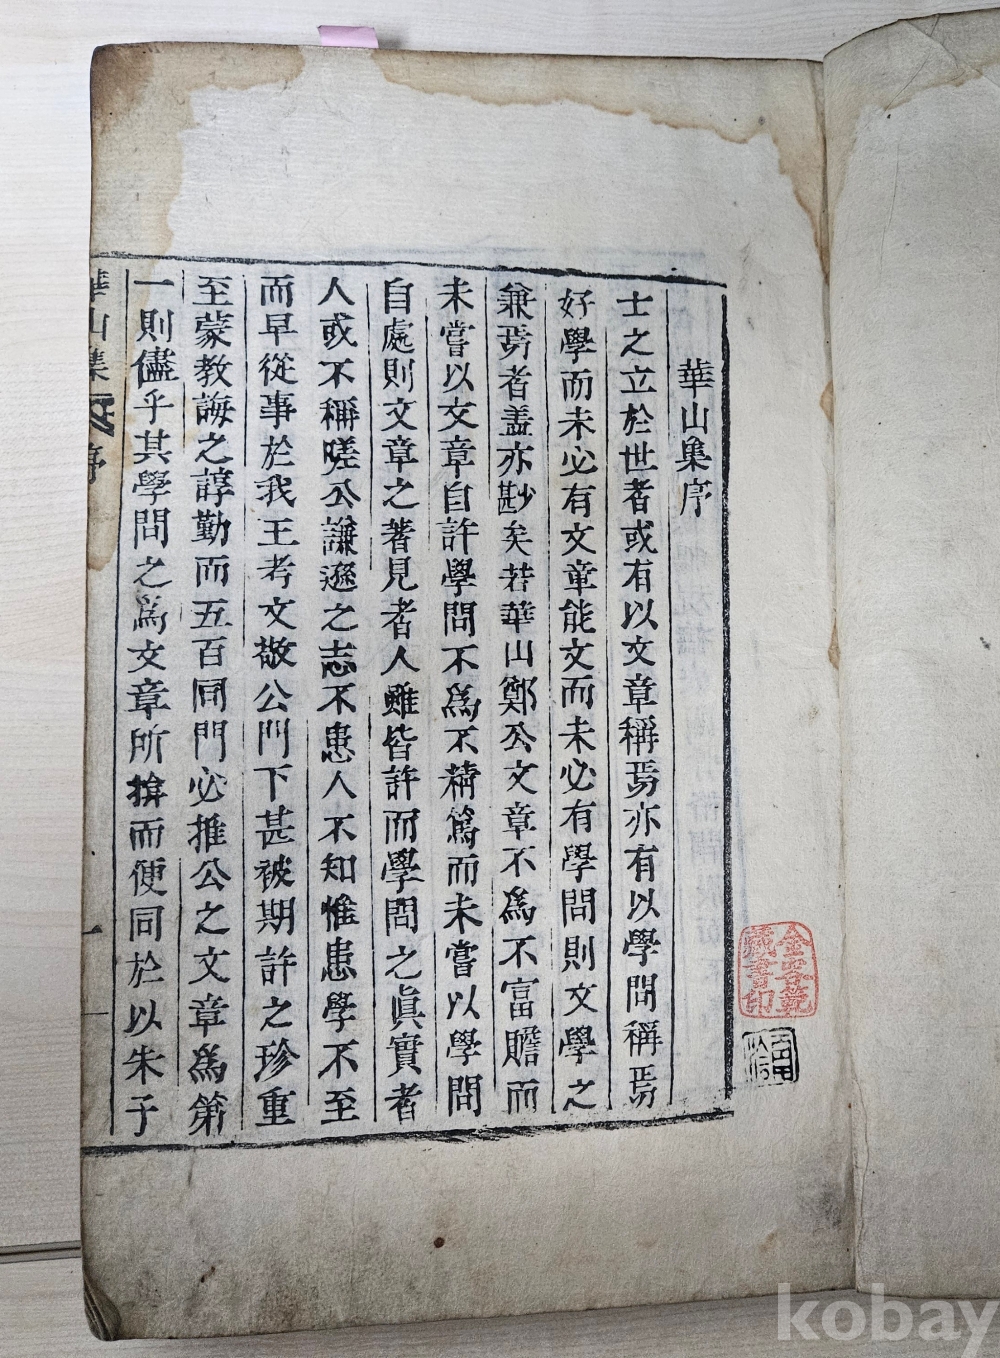 華山集序
士之立於世者或有以文章稱焉亦有以學問稱焉
好學而未必有文章能文而未必有學問則文學之
兼焉者盖亦尠矣若華山鄭公文章不爲不富贍而
未嘗以文章自許學問不爲不精篤而未嘗以學問
自處則文章之著見者人雖皆許而學問之眞實者
人或不稱嗟公謙遜之志不患人不知惟患學不至
而早從事於我王考文敬公門下甚被期許之珍重
至蒙教誨之諄勤而五百同門必推公之文章爲第
一則儘乎其學問之爲文章所揜而便同於以朱子
華山集 序 一
金容範
藏書印
kobay